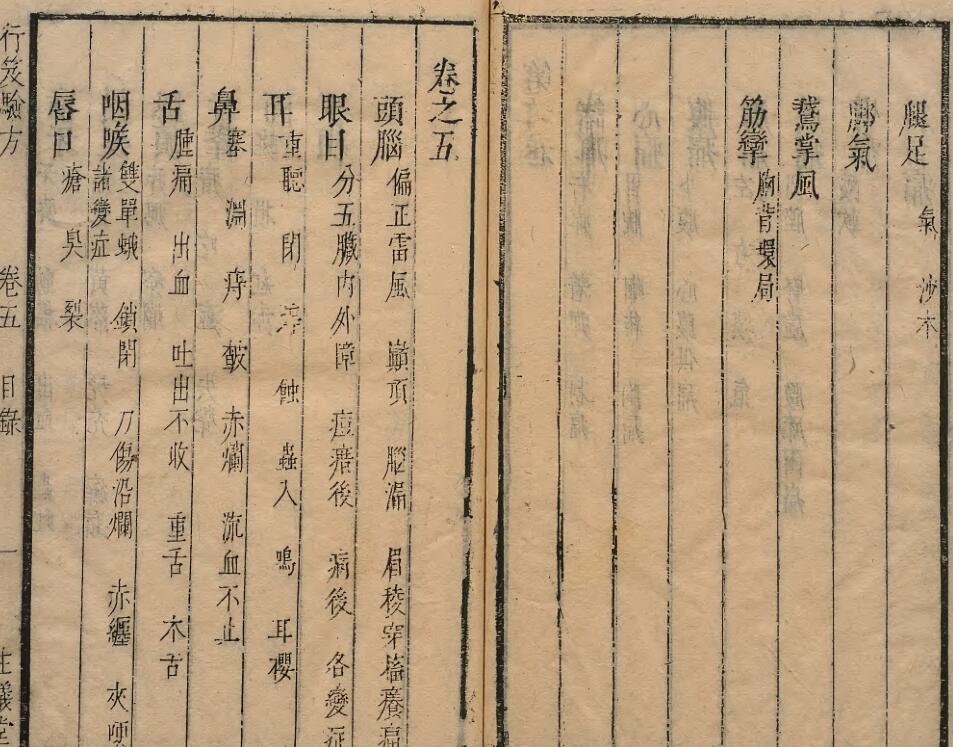 腿足 氣 沙木
脚氣
鵞掌風
筋攣 胸背環局
卷之五
頭腦 偏正雷風 巔頂 腦漏 眉稜穿
眼目 分五臟內外障 痘瘄後 病後 各變症
耳 重聽 閉 蝕 蟲入 鳴 耳
鼻 塞 淵 痔 皶 赤爛 流血不止
舌 腫痛 出血 吐出不收 重舌 木舌
咽喉 雙單蛾 諸變症 鎖閉 刀傷沿爛 赤纏 夾
唇口 瘡 臭 裂
行笈驗方 卷五 目錄 一